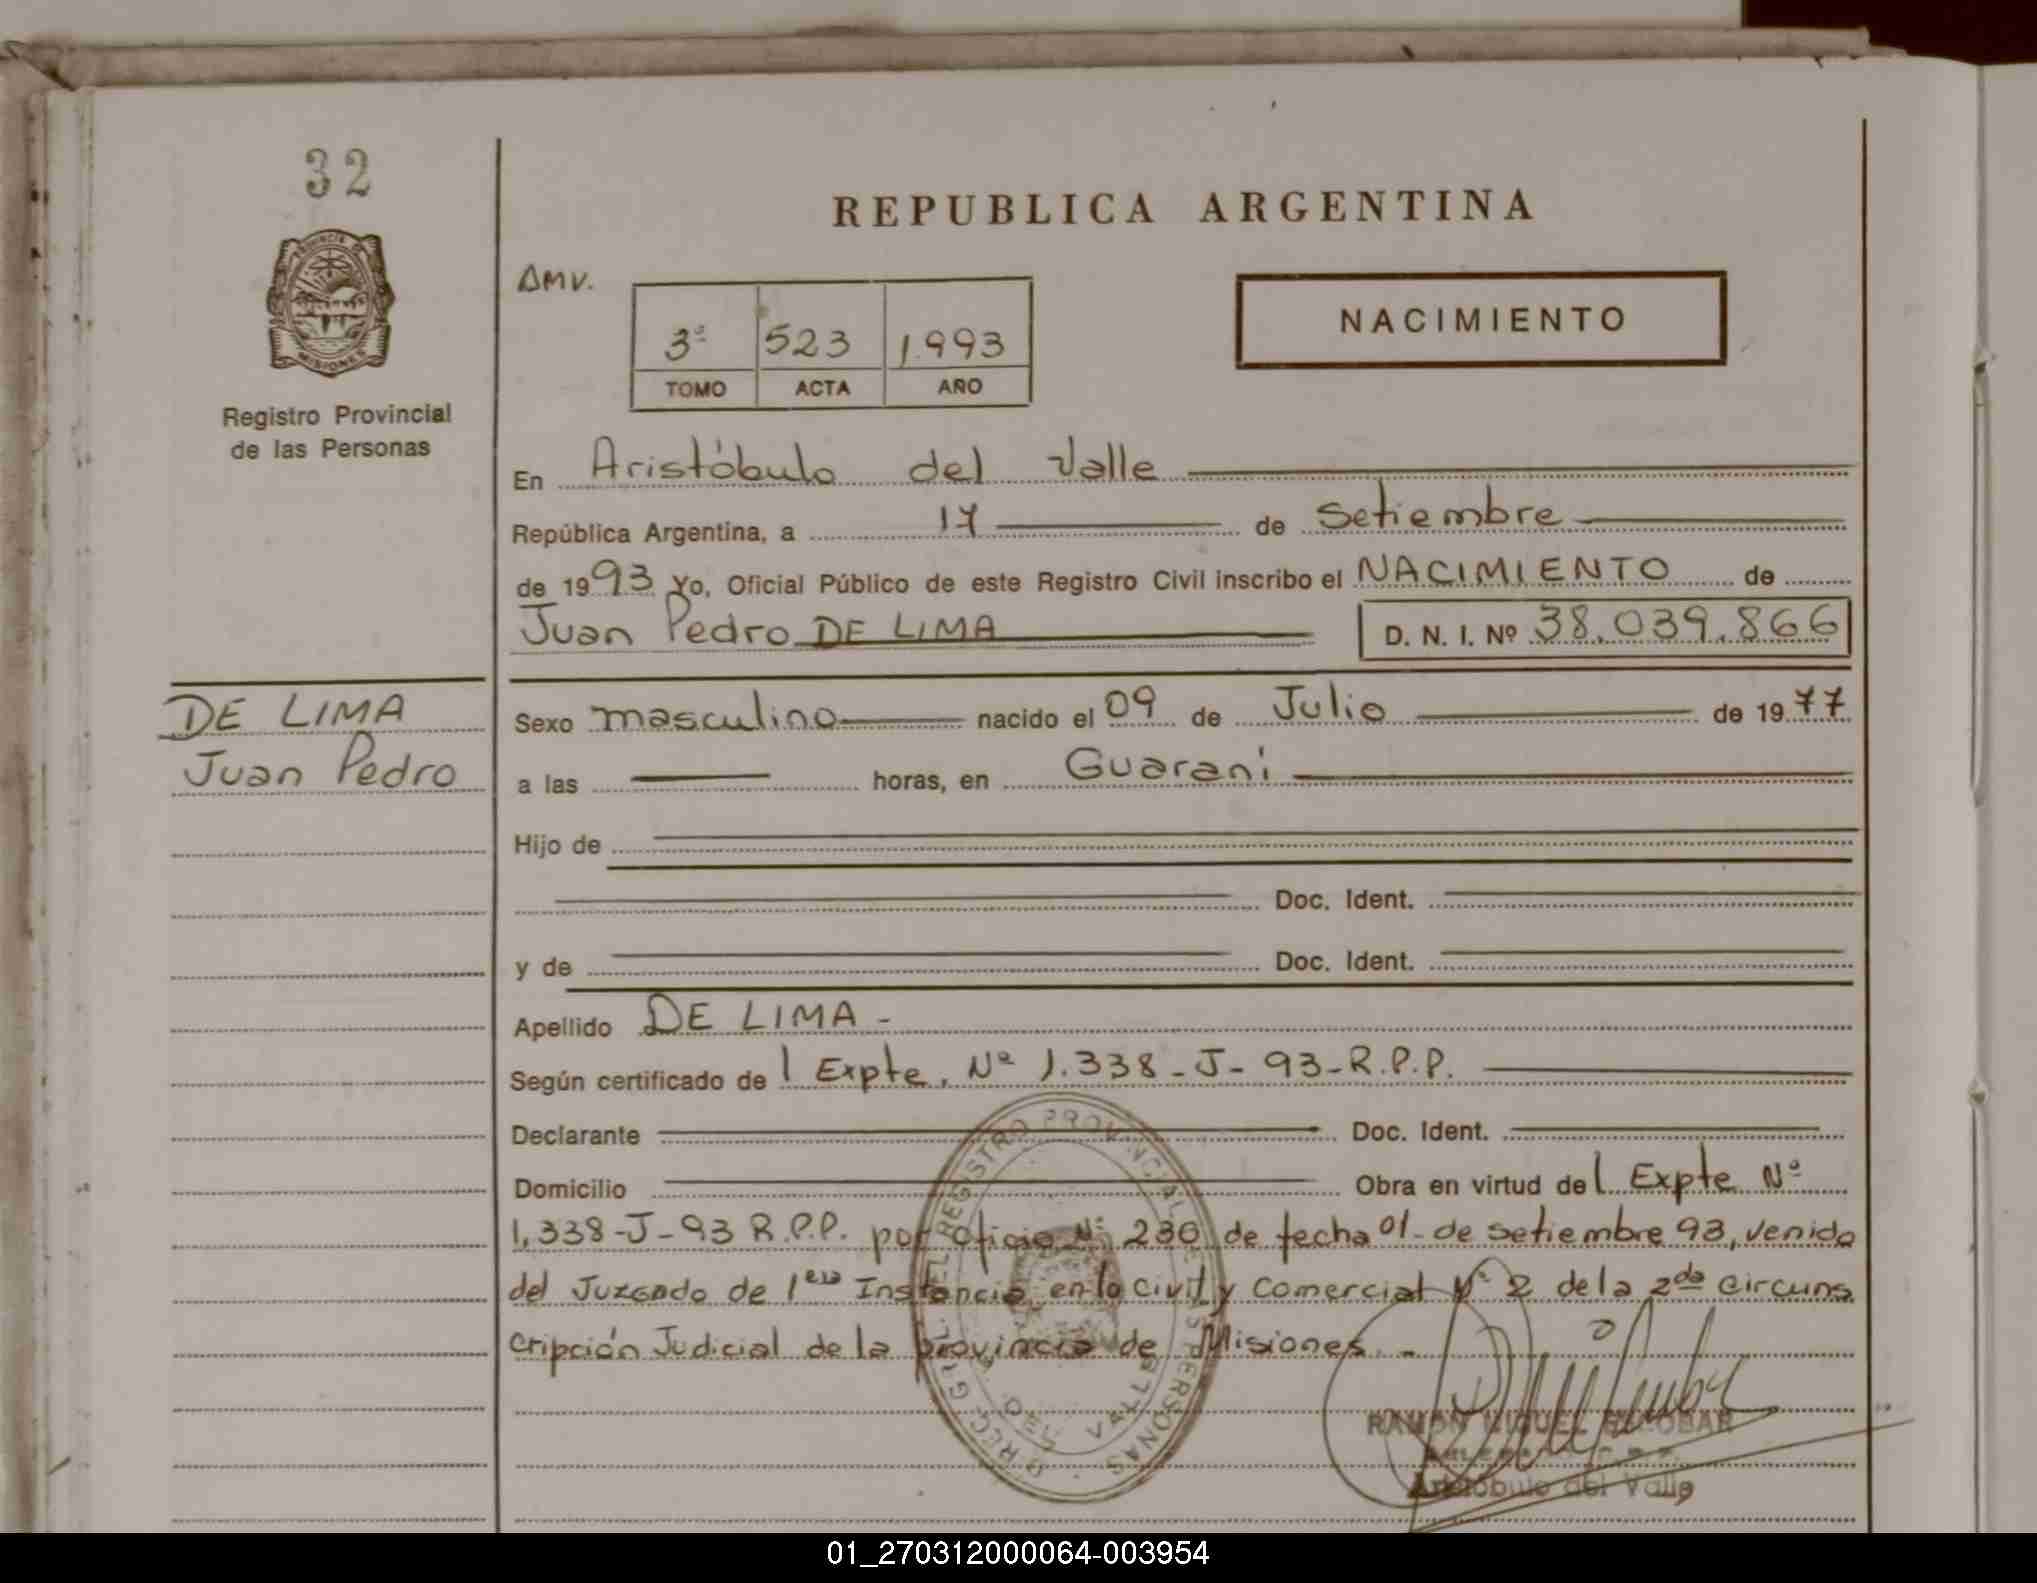 32
PROVINCIA DE
MISIONES
Registro Provincial
de las Personas
REPUBLICA ARGENTINA
AMV.
3º 523 1.993
TOMO ACTA AÑO
NACIMIENTO
En Aristóbulo del Valle
República Argentina, a 17 de Setiembre
de 1993 Yo, Oficial Público de este Registro Civil inscribo el NACIMIENTO de
Juan Pedro DE LIMA D. N. I. Nº 38.039.866
DE LIMA
Juan Pedro
Sexo masculino nacido el 09 de Julio de 1977
a las horas, en Guaraní
Hijo de
Doc. Ident.
y de Doc. Ident.
Apellido DE LIMA -
Según certificado de l Expte. Nº 1.338-J-93-R.P.P.
Declarante Doc. Ident.
Domicilio Obra en virtud de l Expte Nº
1.338-J-93 R.P.P. por oficio Nº 230 de fecha 01- de setiembre 93, venido
del Juzgado de 1era Instancia en lo Civil y Comercial Nº 2 de la 2da circuns
cripción Judicial de la provincia de Misiones. -
REGISTRO PROVINCIAL DE LAS PERSONAS
DEL VALLE
RAMON MIGUEL ESCOBAR
Aristóbulo del Valle
01_270312000064-003954